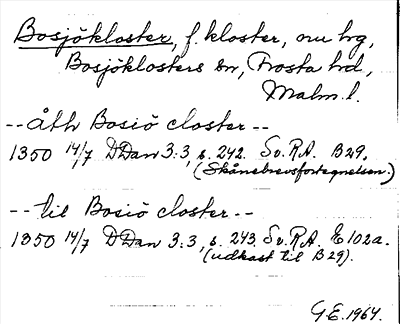 Bosjökloster, f. kloster, nu hg,
Bosjöklosters sn, Frosta hd,
Malm. l.
-- åth Bosiö closter --
1350 14/7 DDan 3:3, s. 242. Sv. R.A. B29.
(Skånebrevsfortegnelsen)
-- til Bosiö closter --
1350 14/7 DDan 3:3, s. 243 Sv. R.A. E102a.
(udkast til B29).
G.E. 1964.